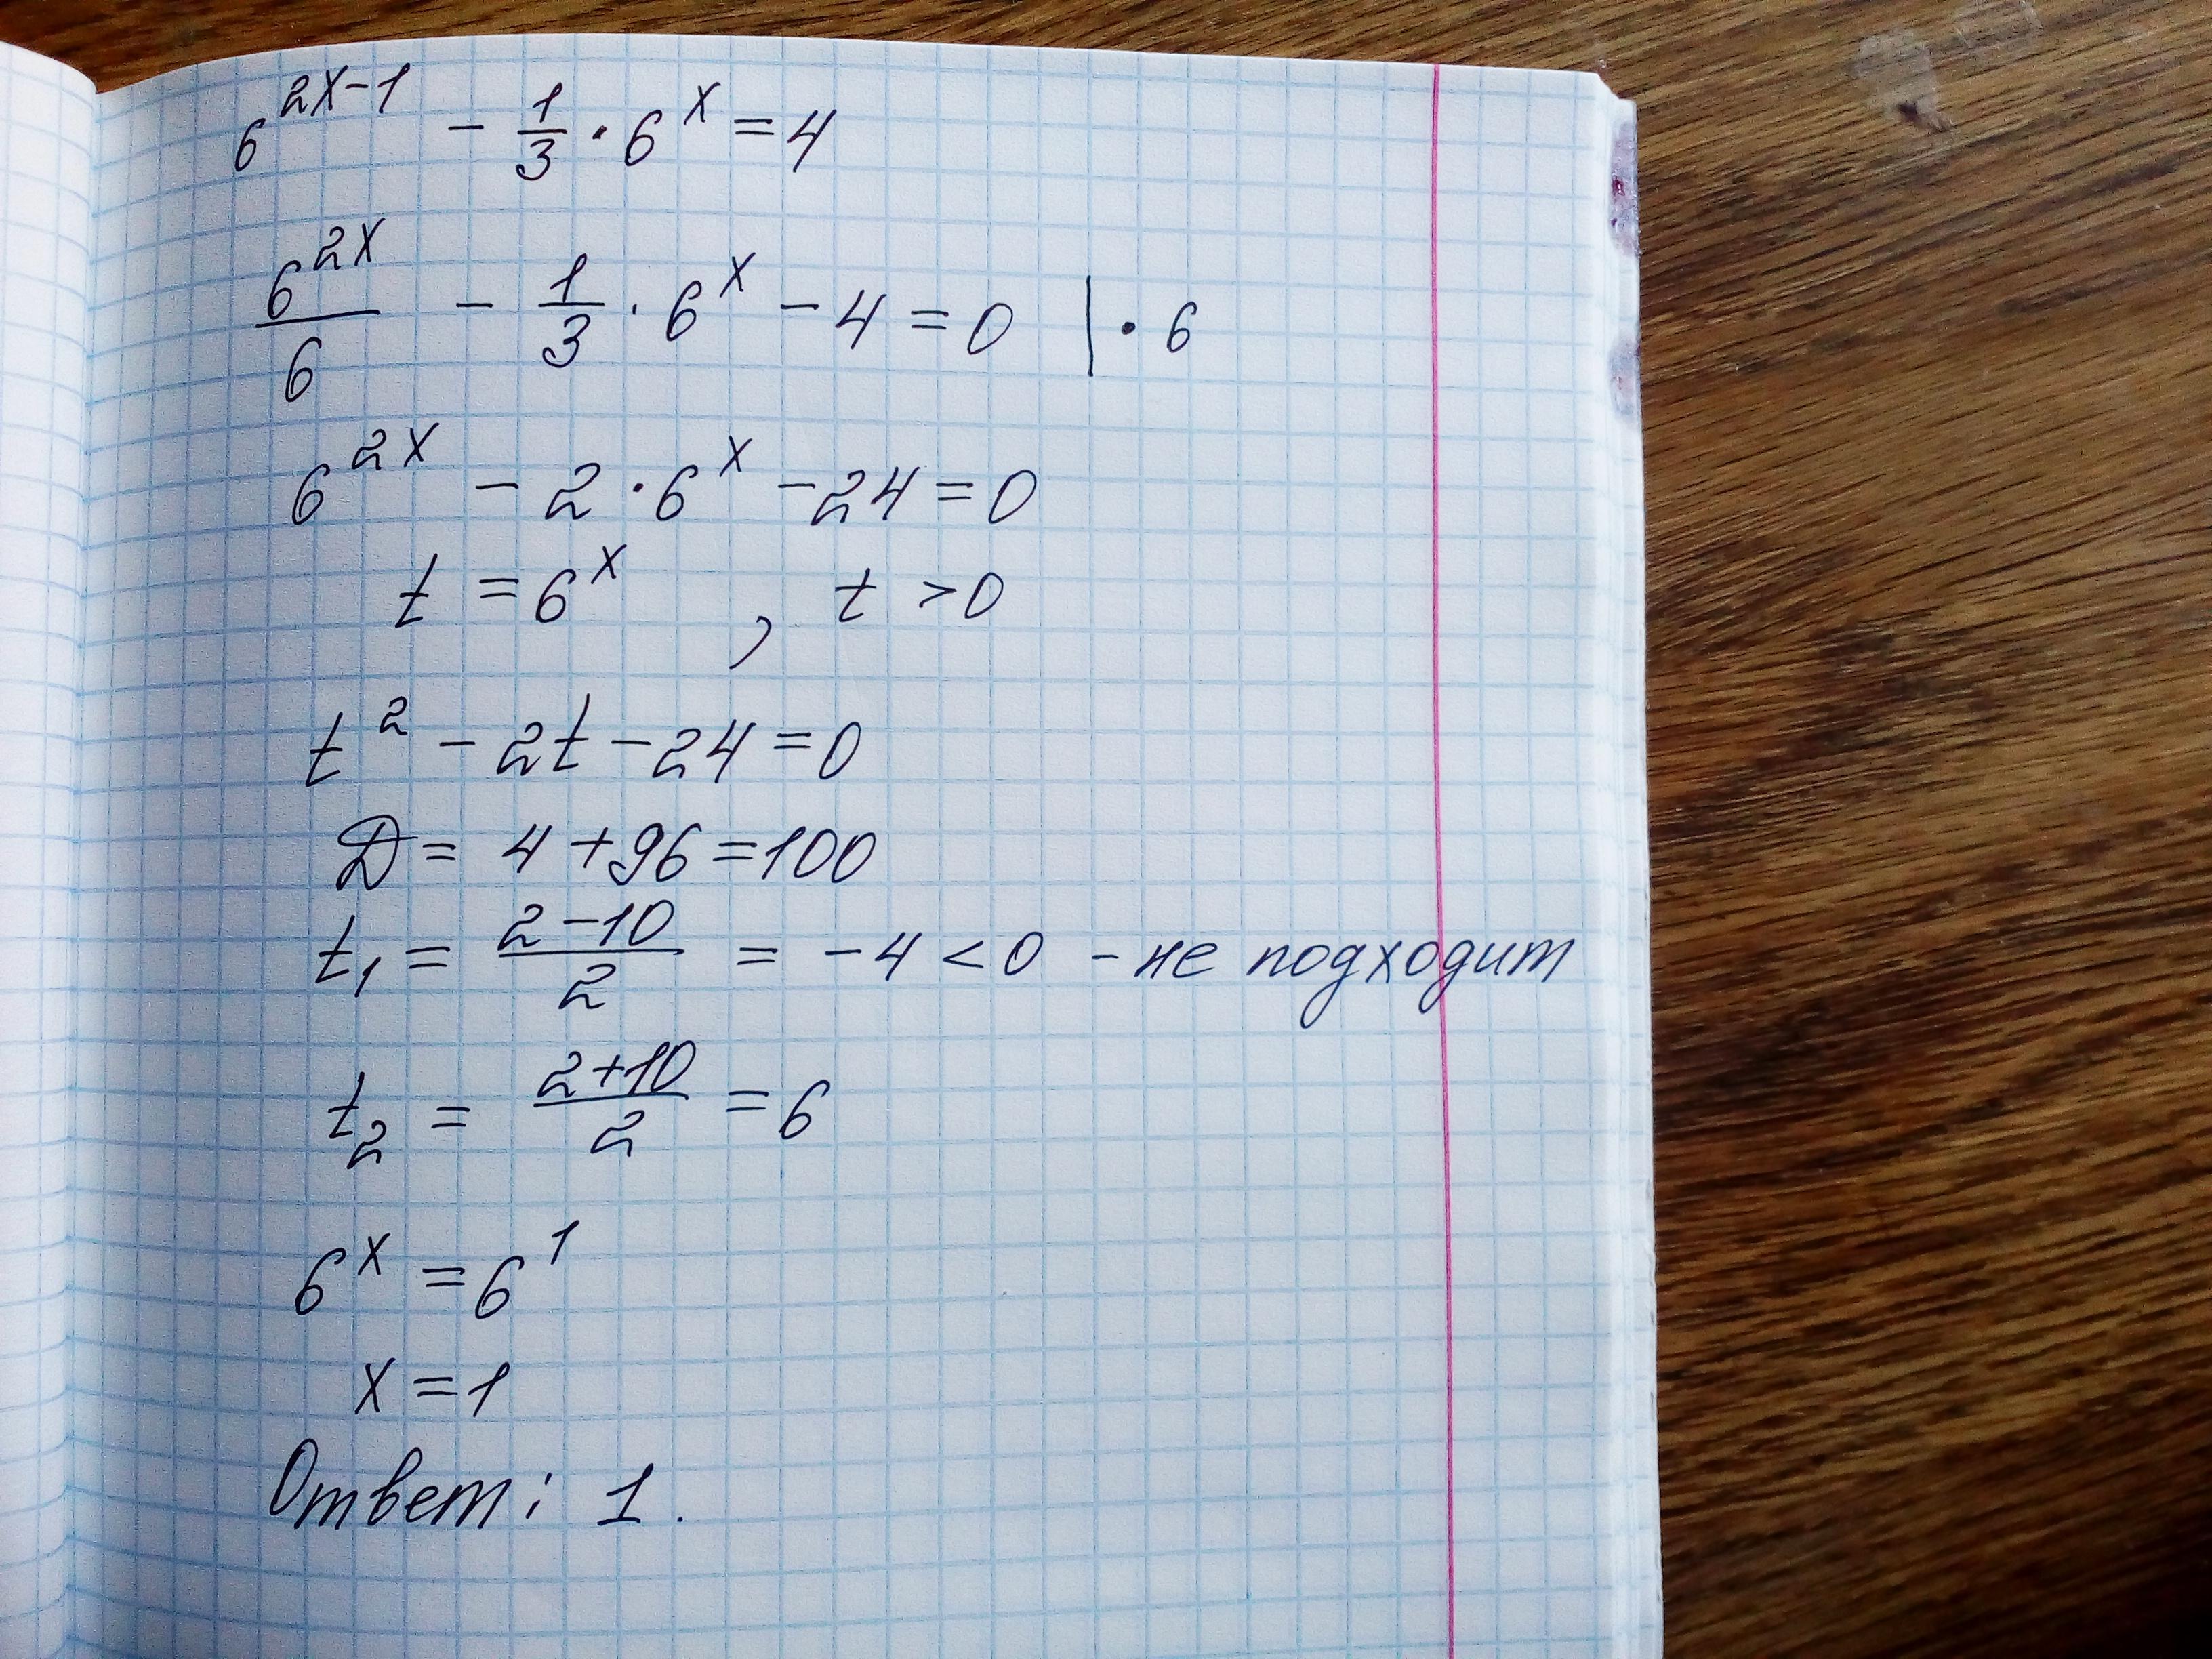 6^{2x-1} - \frac{1}{3} · 6^x = 4
\frac{6^{2x}}{6} - \frac{1}{3} · 6^x - 4 = 0 | · 6
6^{2x} - 2 · 6^x - 24 = 0
t = 6^x , t > 0
t^2 - 2t - 24 = 0
D = 4 + 96 = 100
t_1 = \frac{2-10}{2} = -4 < 0 - не подходит
t_2 = \frac{2+10}{2} = 6
6^x = 6^1
x = 1
Ответ: 1.